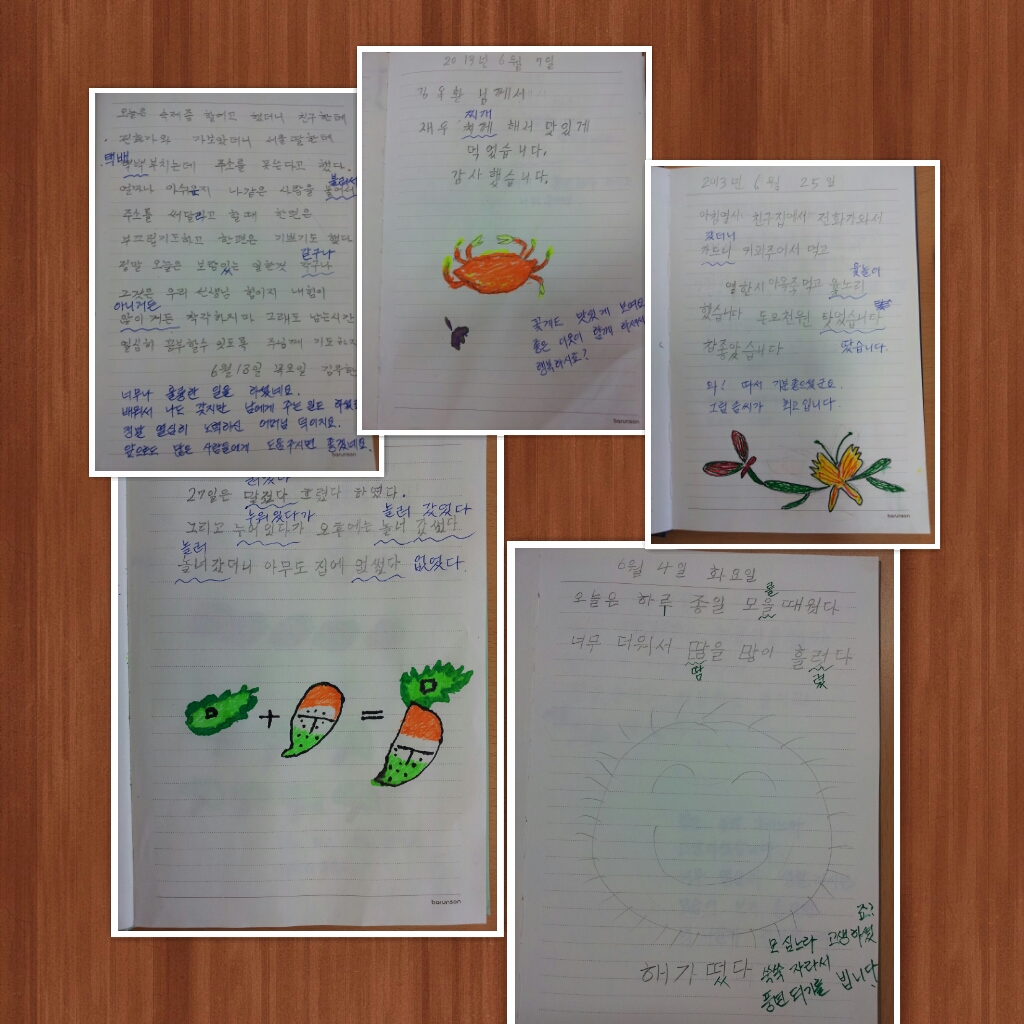 오늘은 숙제좀 할어고 했더니 친구한테
전화가와 가보았더니 서울 딸한테
택배
택박부치는데 주소를 못쓴다고 했다.
얼마나 아쉬운지 나같은 사람을
불러서
주소를 써달라고 할때 한편은
부끄럽기도하고 한편은 기쁘기도 했다
정말 오늘은 보람있는 일한것
같구나
그것은 우리 선생님 힘이지 내힘이
아니거든
착각하지마 그래도 남는시간
열심히 공부할수 있도록 주님께 기도하자
6월 13일 목요일
너무나 훌륭한 일을 하셨네요.
배워서 나도 갖지만 남에게 주는 일도
정말 열심히 노력하신 어머님 덕이지요.
앞으로도 많은 사람들에게 도움주시면 좋겠네요.
barunson
2013년 6월 7일
님께서
찌개
해서 맛있게
먹었습니다.
감사했습니다.
꽃게도 맛있게 보여요
좋은 이웃이 함께 하셔서
행복하시죠?
barunson
2013년 6월 25일
아침열시 친구집에서 전화가와서
갔더니
가드니 커피주어서 먹고
열한시 아욱죽먹고 윷노리
윷놀이
했습니다 돈오천원 탓었습니다
참좋았습니다
땄습니다.
와! 따서 기분좋으셨군요.
그림솜씨가 최고입니다
barunson
27일은 흐렸다 하였다.
누워있다가 놀러 갔었다
그리고 누어있다가 오후에는 놀너 갔썼다
놀러
놀너갔더니 아무도 집에 업썼다 없었다.
+ =
barunson
6월 4일 화요일
오늘은 하루 종일 모을 때웠다
를
너무 더워서 땁을 많이 흘러다
땀 렸
해가 떴다
모 심느라 고생하셨
죠?
쑥쑥 자라서
풍년 되기를 빕니다